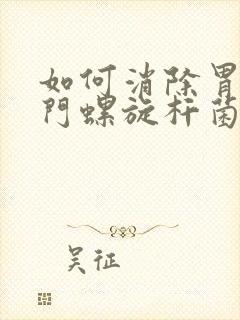 如何消除胃
門螺旋杆菌
吴征